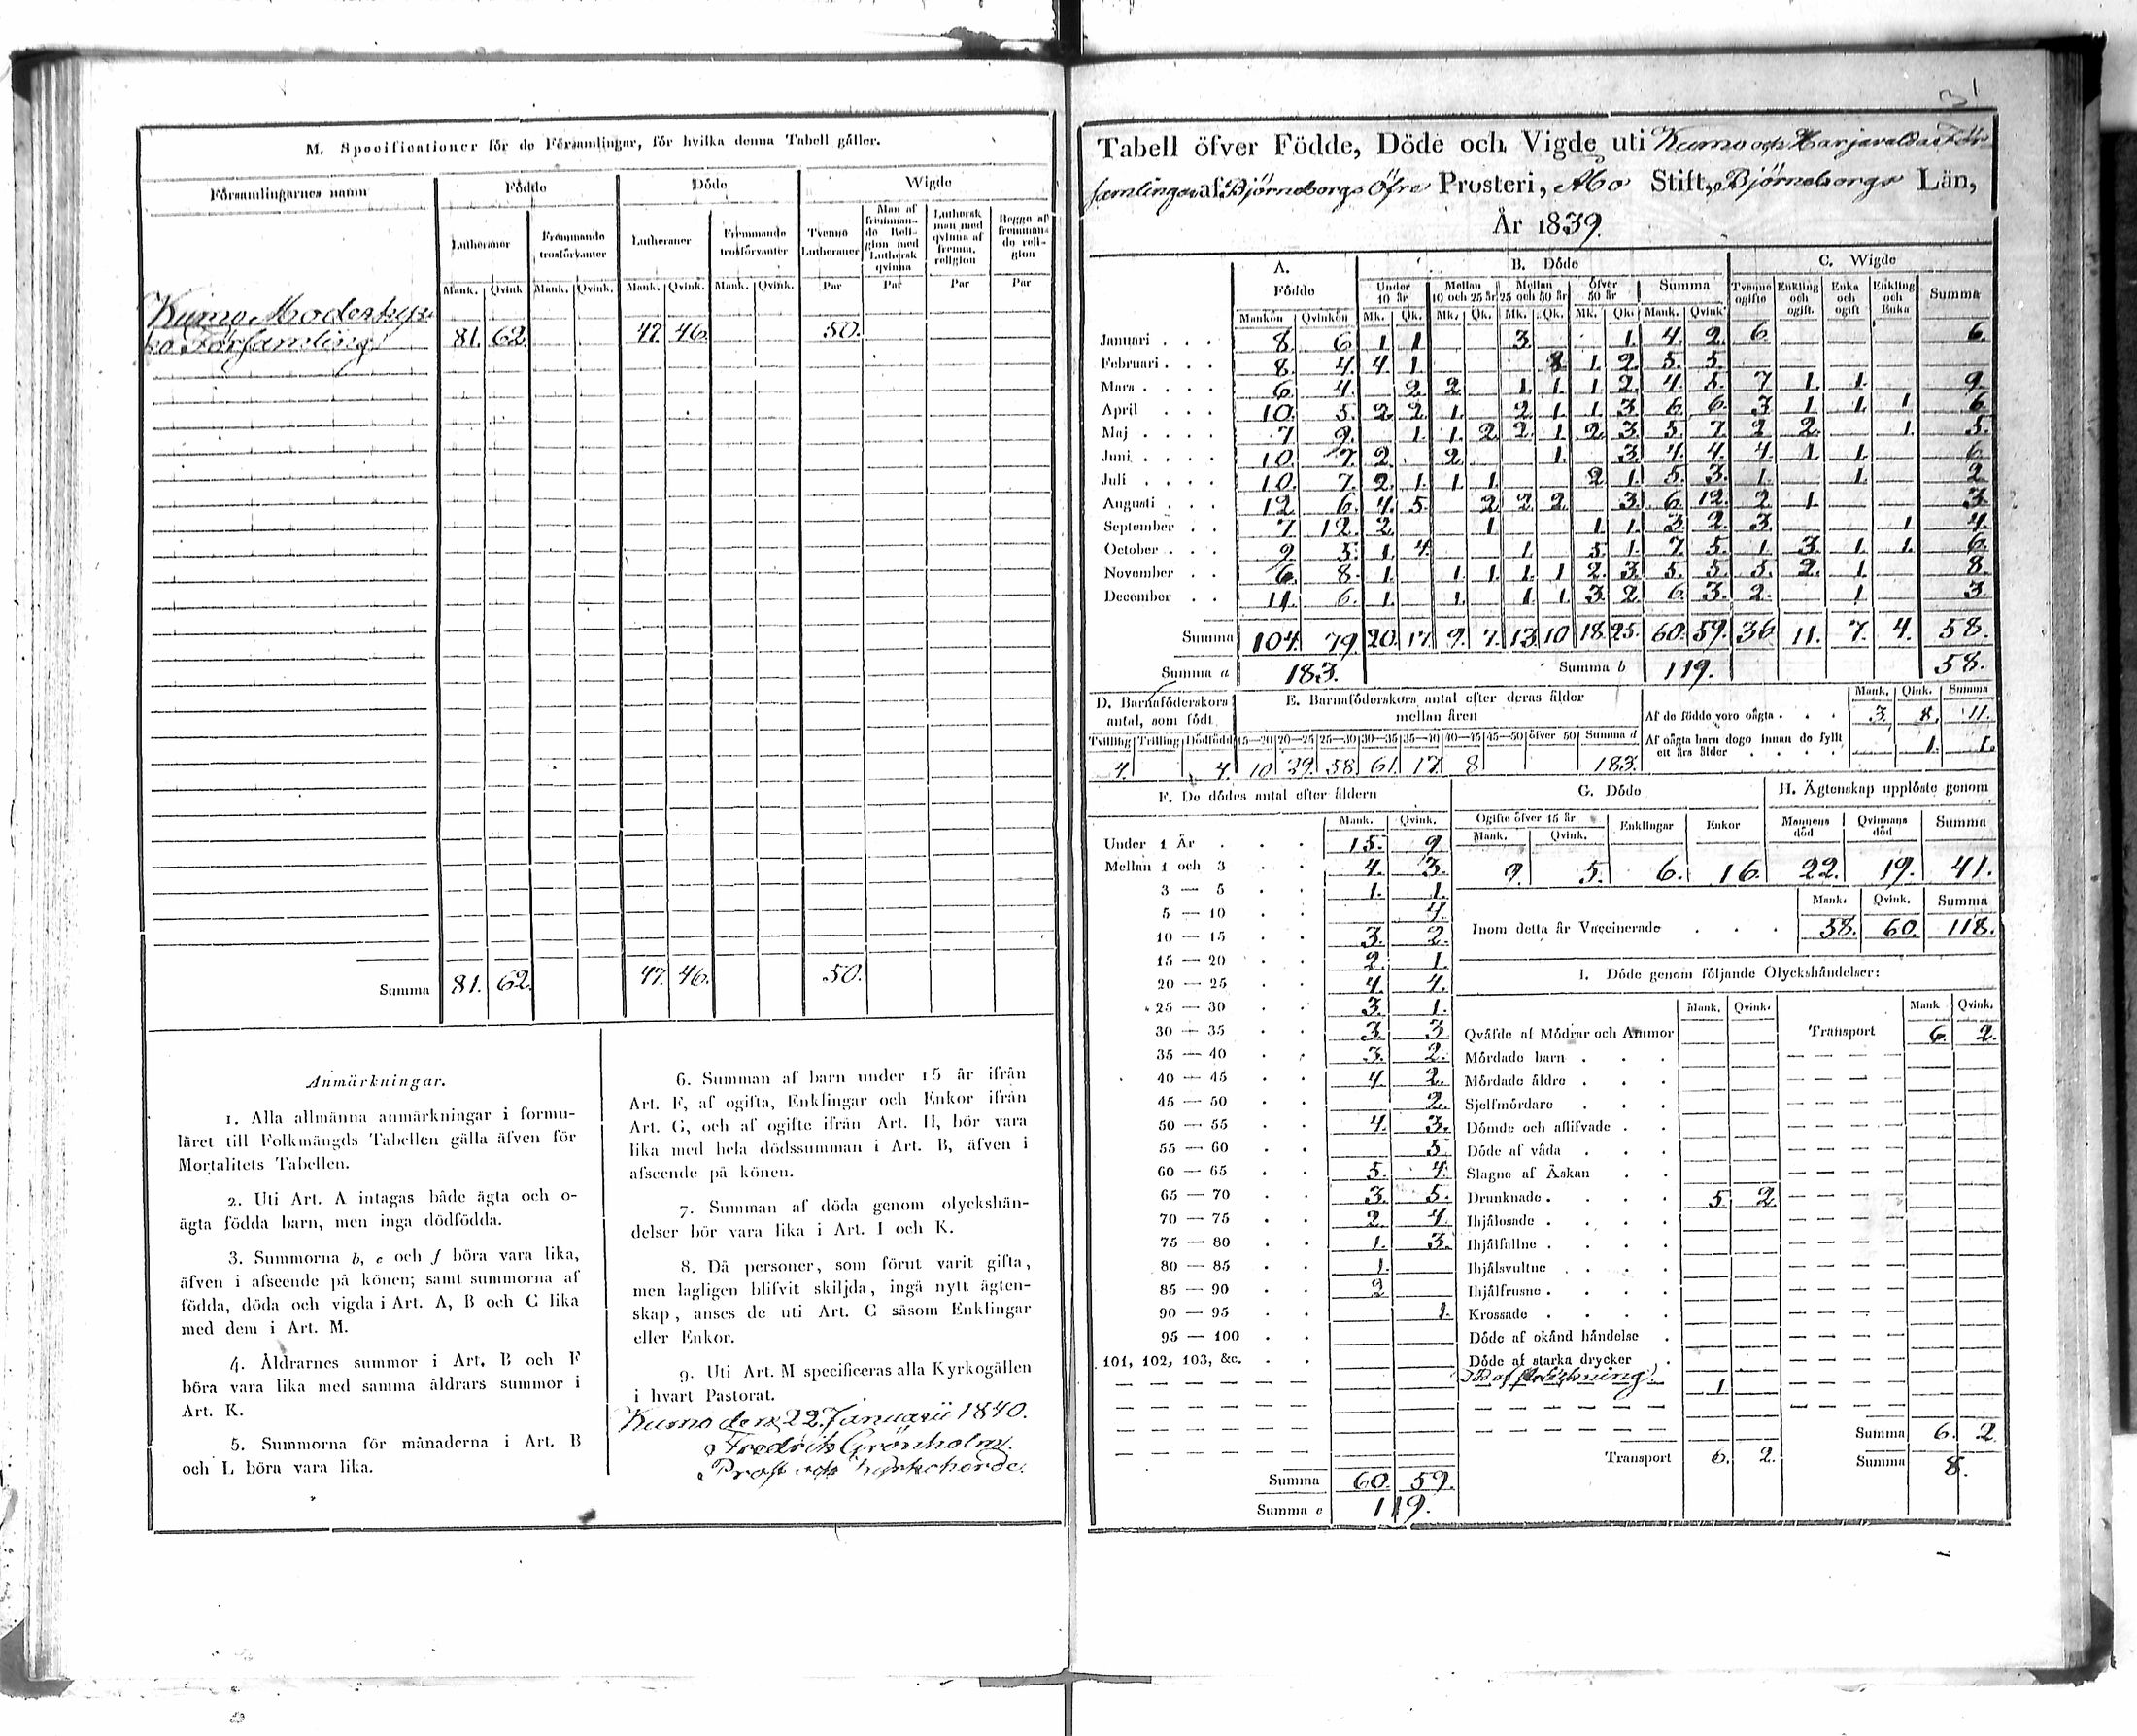 M. Specificationer för de Församlingar, för hvilka denna Tabell gäller.
Församlingarnes namn Födde Döde Wigde
Lutheraner Främmande trosförvanter Lutheraner Främmande trosförvanter Tvenne Lutheraner Man af främmande Religion med Luthersk qvinna Luthersk man med qvinna af fremm. religion Begge af fremmande religion
Mank. Qvink Mank. Qvink. Mank. Qvink. Mank. Qvink. Par Par Par Par
Kumo Moderkyr-
ko Församling 81. 62. 47. 46. 50.
Summa 81. 62. 47. 46. 50.
Anmärkningar.
1. Alla allmänna anmärkningar i formu-
läret till Folkmängds Tabellen gälla äfven för
Mortalitets Tabellen.
2. Uti Art. A intagas både ägta och o-
ägta födda barn, men inga dödfödda.
3. Summorna b, e och f böra vara lika,
äfven i afseende på könen; samt summorna af
födda, döda och vigda i Art. A, B och C lika
med dem i Art. M.
4. Åldrarnes summor i Art. B och F
böra vara lika med samma åldrars summor i
Art. K.
5. Summorna för månaderna i Art. B
och L böra vara lika.
6. Summan af barn under 15 år ifrån
Art. F, af ogifta, Enklingar och Enkor ifrån
Art. G, och af ogifte ifrån Art. H, bör vara
lika med hela dödssumman i Art. B, äfven i
afseende på könen.
7. Summan af döda genom olyckshän-
delser bör vara lika i Art. I och K.
8. Då personer, som förut varit gifta,
men lagligen blifvit skiljda, ingå nytt ägten-
skap, anses de uti Art. C såsom Enklingar
eller Enkor.
9. Uti Art. M specificeras alla Kyrkogällen
i hvart Pastorat.
Kumo den 22 Januarii 1840.
Fredrik Grönholm.
Prost och Kyrkoherde.
31
Tabell öfver Födde, Döde och Vigde uti Kumo och Harjavalda För-
samlingar af Björneborgs Öfre Prosteri, Åbo Stift, Björneborgs Län,
År 1839.
A. Födde B. Döde C. Wigde
Under 10 år Mellan 10 och 25 år Mellan 25 och 50 år Öfver 50 år Summa Tvenne ogifte Enkling och ogift. Enka och ogift Enkling och Enka Summa
Mankön Qvinkön Mk. Qk. Mk. Qk. Mk. Qk. Mk. Qk. Mank. Qvink.
Januari 8. 6. 1. 1. 3. 1. 4. 2. 6. 6.
Februari 8. 4. 4. 1. 1. 2. 5. 5.
Mars 6. 4. 2. 2. 1. 1. 1. 2. 4. 5. 7. 1. 1. 9.
April 10. 5. 2. 2. 1. 2. 1. 1. 3. 6. 6. 3. 1. 1. 1. 6.
Maj 7 9. 1. 1. 2. 2. 1. 2. 3. 5. 7. 2. 2. 1. 5.
Juni 10. 7. 2. 2. 1. 3. 4. 4. 4. 1. 1. 6.
Juli 10. 7. 2. 1. 1. 1. 2. 1. 5. 3. 1. 1. 2
Augusti 12 6. 4. 5. 2. 2. 2. 3. 6. 12. 2. 1. 3.
September 7. 12. 2. 1. 1. 1. 3. 2. 3. 1. 4.
October 9. 5. 1. 4. 1. 5. 1. 7. 5. 1. 3. 1. 1. 6.
November 6. 8. 1. 1. 1. 1. 1. 2. 3. 5. 5. 5. 2. 1. 8.
December 11. 6. 1. 1. 1. 1. 3. 2. 6. 3. 2. 1. 3.
Summa 104. 79. 20. 17. 9. 7. 13. 10 18. 25. 60. 59. 36 11. 7. 4. 58.
Summa a 183. Summa b 119. 58.
D. Barnaföderskors antal, som födt
Tvilling Trilling Dödfödd
4. 4.
E. Barnaföderskors antal efter deras ålder
mellan åren
15—20 20—25 25—30 30—35 35—40 40—45 45—50 öfver 50 Summa d
10 29. 58. 61. 17. 8 183.
Mank. Qink. Summa
Af de födde voro oägta 3. 8. 11.
Af oägta barn dogo innan de fyllt
ett års ålder 1. 1.
F. De dödes antal efter åldern
Mank. Qvink.
Under 1 År 15. 9
Mellan 1 och 3 4. 3.
3 — 5 1. 1.
5 — 10 4.
10 — 15 3. 2.
15 — 20 2. 1.
20 — 25 4. 4.
25 — 30 3. 1.
30 — 35 3. 3
35 — 40 3. 2.
40 — 45 4 2.
45 — 50 2.
50 — 55 4. 3.
55 — 60 5.
60 — 65 5. 4.
65 — 70 3. 5.
70 — 75 2. 4.
75 — 80 1. 3.
80 — 85 1.
85 — 90 2
90 — 95 1.
95 — 100
101, 102, 103, &c.
Summa 60. 59.
Summa e 119.
G. Döde
Ogifte öfver 15 år Enklingar Enkor
Mank. Qvink.
9. 5. 6. 16.
H. Ägtenskap upplöste genom
Mannens död Qvinnans död Summa
22. 19. 41.
Mank. Qvink. Summa
Inom detta år Vaccinerade 58. 60. 118.
I. Döde genom följande Olyckshändelser:
Mank. Qvink. Mank Qvink.
Qväfde af Mödrar och Ammor Transport 6. 2.
Mördade barn
Mördade äldre
Sjelfmördare
Dömde och aflifvade
Döde af våda
Slagne af Åskan
Drunknade 5. 2.
Ihjälosade
Ihjälfallne
Ihjälsvultne
Ihjälfrusne
Krossade
Döde af okänd händelse
Döde af starka drycker
1
Summa 6. 2
Transport 6. 2. Summa 8.